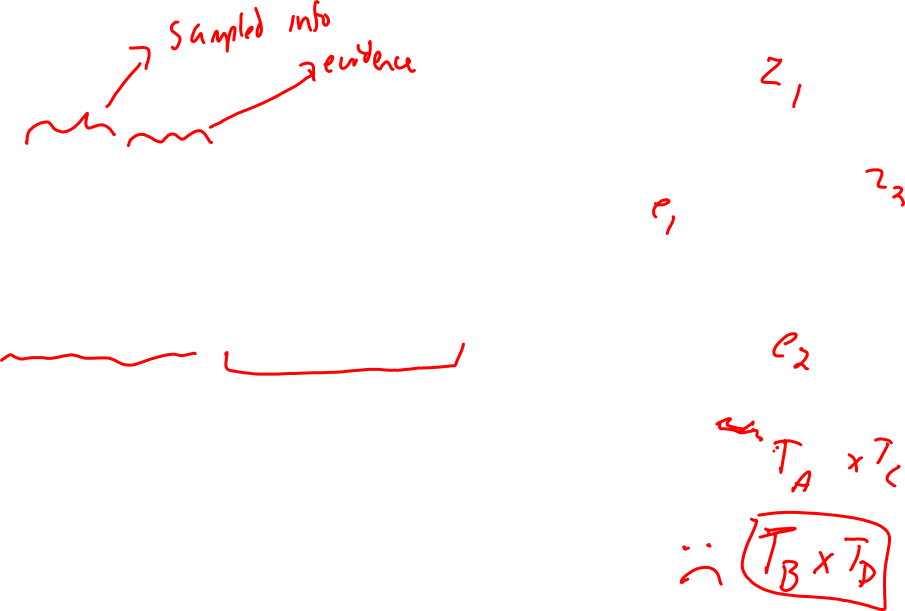 sampled info
evidence
z1
z2
e1
e2
TA x TC
TB x TD